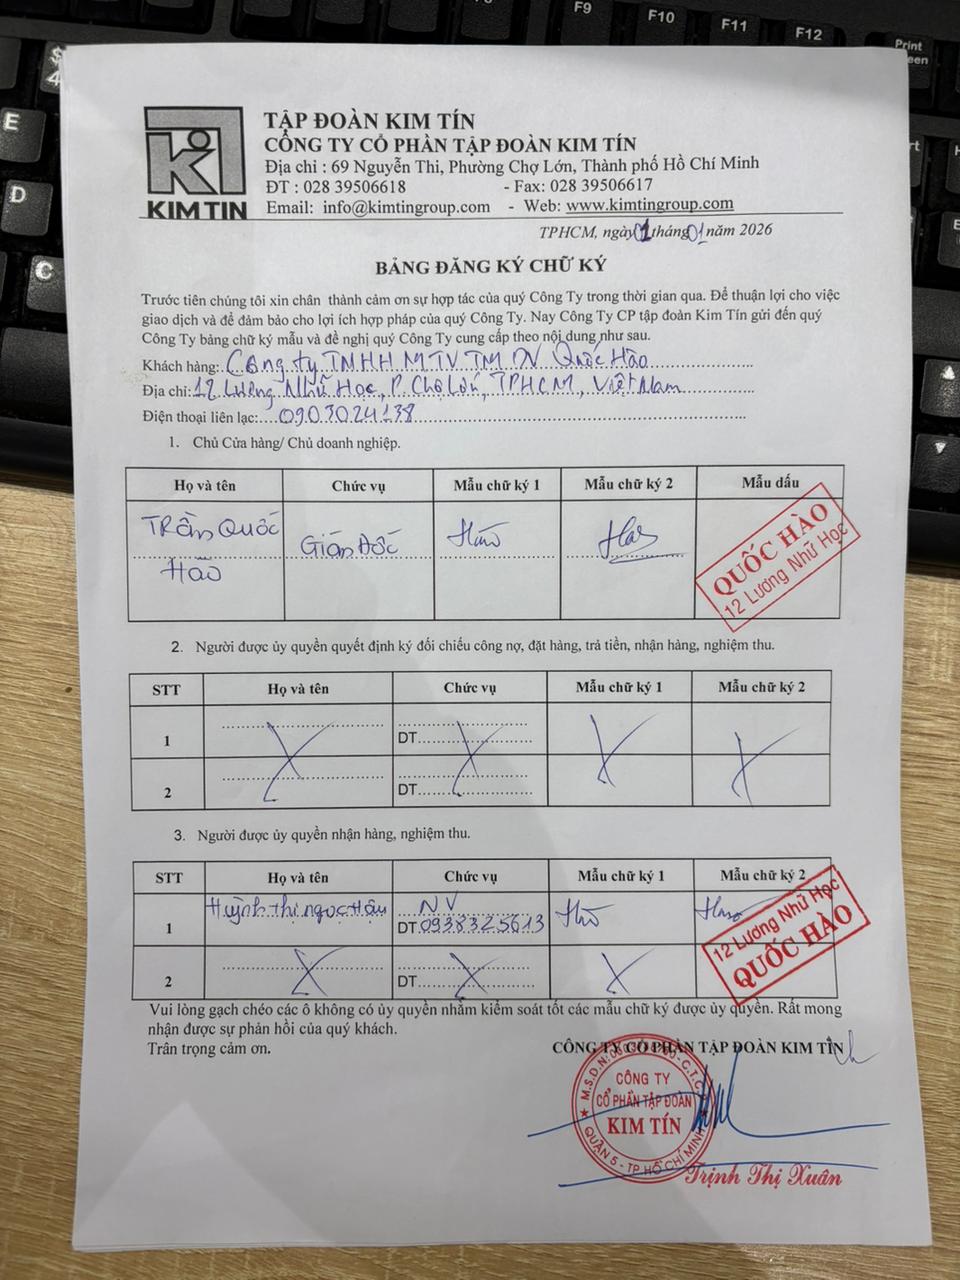 $
4
E
D
C
F9
F10
F11
F12
Print
KIM TIN
TẬP ĐOÀN KIM TÍN
CÔNG TY CỔ PHẦN TẬP ĐOÀN KIM TÍN
Địa chỉ : 69 Nguyễn Thi, Phường Chợ Lớn, Thành phố Hồ Chí Minh
ĐT : 028 39506618 - Fax: 028 39506617
Email: info@kimtingroup.com - Web: www.kimtingroup.com
TPHCM, ngày 01 tháng 01 năm 2026
BẢNG ĐĂNG KÝ CHỮ KÝ
Trước tiên chúng tôi xin chân thành cảm ơn sự hợp tác của quý Công Ty trong thời gian qua. Để thuận lợi cho việc
giao dịch và để đảm bảo cho lợi ích hợp pháp của quý Công Ty. Nay Công Ty CP tập đoàn Kim Tín gửi đến quý
Công Ty bảng chữ ký mẫu và đề nghị quý Công Ty cung cấp theo nội dung như sau.
Khách hàng: Công ty TMHH MTV TM DV Quốc Hào
Địa chỉ: 12 Lương Nhữ Học, P. Chợ Lớn, TPHCM, Việt Nam
Điện thoại liên lạc: 0903024138
1. Chủ Cửa hàng/ Chủ doanh nghiệp.
Họ và tên Chức vụ Mẫu chữ ký 1 Mẫu chữ ký 2 Mẫu dấu
Trần Quốc Hào Giám Đốc Hào
QUỐC HÀO
12 Lương Nhữ Học
2. Người được ủy quyền quyết định ký đối chiếu công nợ, đặt hàng, trả tiền, nhận hàng, nghiệm thu.
STT Họ và tên Chức vụ Mẫu chữ ký 1 Mẫu chữ ký 2
1 DT
2 DT
3. Người được ủy quyền nhận hàng, nghiệm thu.
STT Họ và tên Chức vụ Mẫu chữ ký 1 Mẫu chữ ký 2
1 Huỳnh thị ngọc Hậu NV
DT 0938325613
12 Lương Nhữ Học
QUỐC HÀO
2 DT
Vui lòng gạch chéo các ô không có ủy quyền nhằm kiểm soát tốt các mẫu chữ ký được ủy quyền. Rất mong
nhận được sự phản hồi của quý khách.
Trân trọng cảm ơn.
CÔNG TY CỔ PHẦN TẬP ĐOÀN KIM TÍN
CÔNG TY
CỔ PHẦN TẬP ĐOÀN
KIM TÍN
QUẬN 5 - TP HỒ CHÍ MINH
Trịnh Thị Xuân